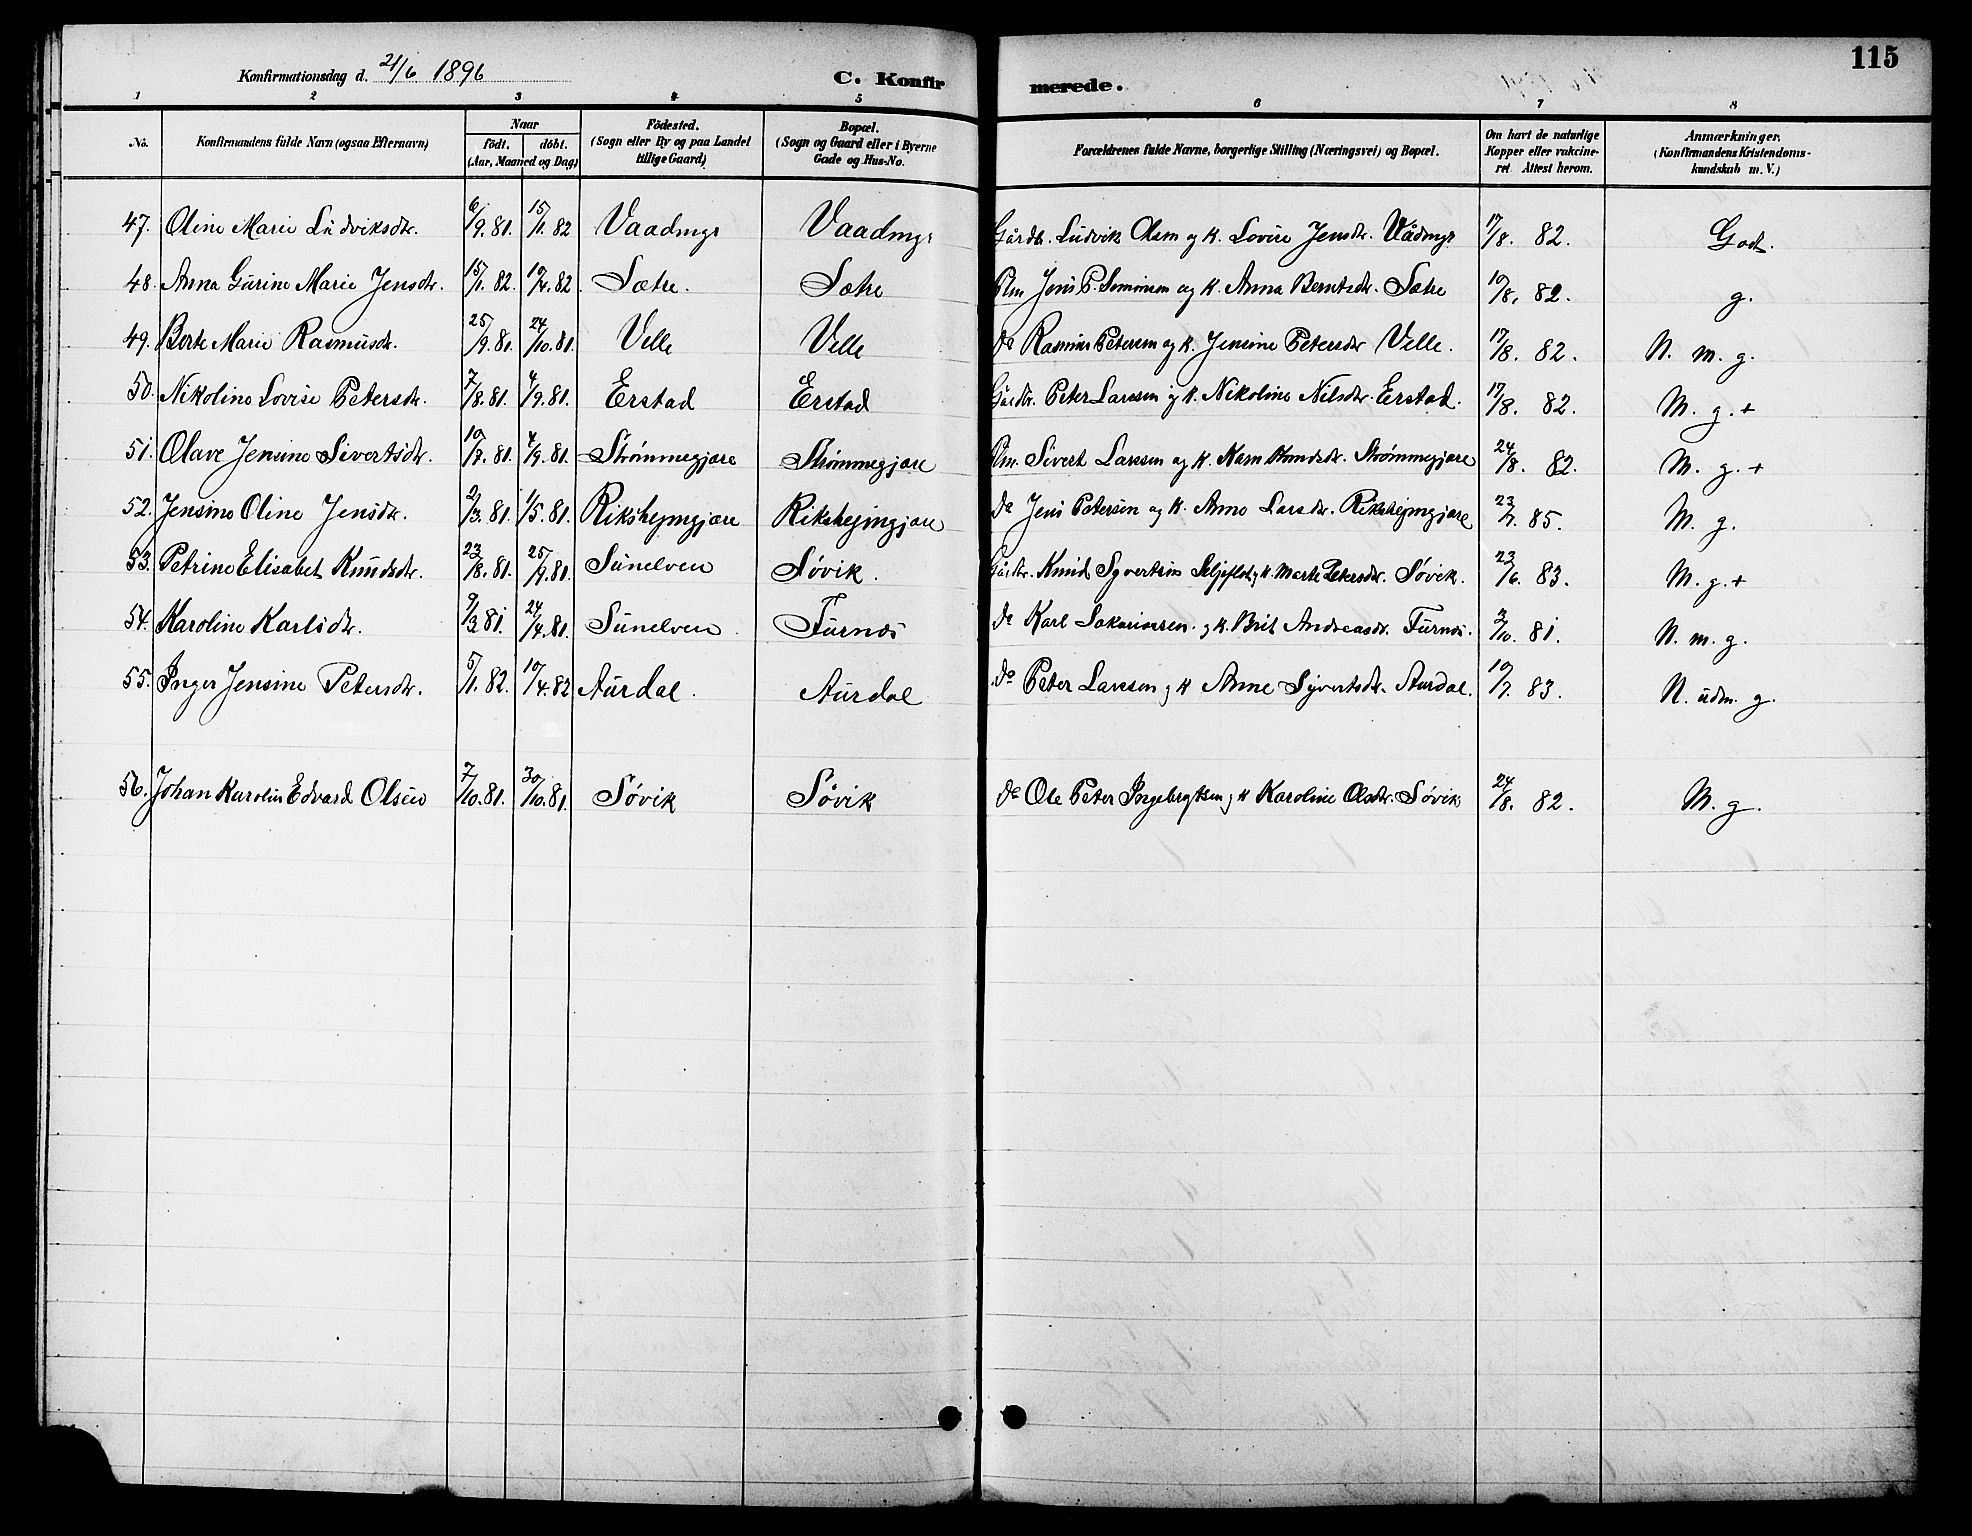 115
Konfirmationsdag d. 21/6 1896
C. Konfirmerede.
1 2 3 4 5 6 7 8
No. Konfirmandens fulde Navn (ogsaa Efternavn) Naar födt. döbt. (Aar, Maaned og Dag) Födested. (Sogn eller By og paa Landet tillige Gaard) Bopæl. (Sogn og Gaard eller i Byerne Gade og Hus-No. Forældrenes fulde Navne, borgerlige Stilling (Næringsvei) og Bopæl. Om havt de naturlige Kopper eller vakcineret. Attest herom. Anmærkninger. (Konfirmandens Kristendomskundskab m. V.)
47. Oline Marie Ludviksdr. 6/9. 81. 15/1. 82 Vaadmyr Vaadmyr Gårdb. Ludvik Olsen og K. Lovise Jensdr. Vådmyr 17/8. 82. God.
48. Anna Gurine Marie Jensdr. 15/1. 82. 10/4. 82. Sætre. Sætre Jens P. og K. Anna Berntsdr. Sætre 10/8. 82. g.
49. Berte Marie Rasmusdr. 25/9. 81. 24/10. 81. Velle Velle do Rasmus Petersen og K. Jensine Petersdr Velle. 17/8. 82. N. m. g.
50. Nikoline Lovise Petersdr. 7/8. 81. 4/9. 81. Erstad Erstad Gårdbr. Peter Larssen og K. Nikoline Nilsdr. Erstad. 17/8. 82. M. g. +
51. Olave Jensine Sivertsdr. 10/7. 81. 4/9. 81. Strømmegjære Strømmegjære Sivert Larssen og K. Karn Strømmegjære 24/8. 82. M. g. +
52. Jensine Oline Jensdr. 2/3. 81. 1/5. 81. Riksheimgjære Riksheimgjære do Jens Petersen og K. Anne Larsdr. Riksheimgjære 23/7. 85. M. g.
53. Petrine Elisabet Knudsdr. 23/8. 81. 25/9. 81. Sunelven Søvik. Gårdbr. Knud Syvertsen og K. Marte Petersdr. Søvik. 23/6. 83. M. g. +
54. Karoline Karlsdr. 9/3 81. 24/4. 81. Sunelven Furnæs do Karl Sakariassen. og K. Brit Andreasdr. Furnæs. 3/10. 81. N. m. g.
55. Inger Jensine Petersdr. 5/1. 82. 10/4. 82 Aurdal. Aurdal do Peter Larssen og K Anne Syvertsdr. Aurdal. 19/7. 83. N. udm. g.
56. Johan Karolus Edvard Olsen 7/10. 81. 30/10. 81. Søvik Søvik do Ole Peter Ingebrigtsen og K Karoline Olsdtr. Søvik 24/8. 82. M. g.